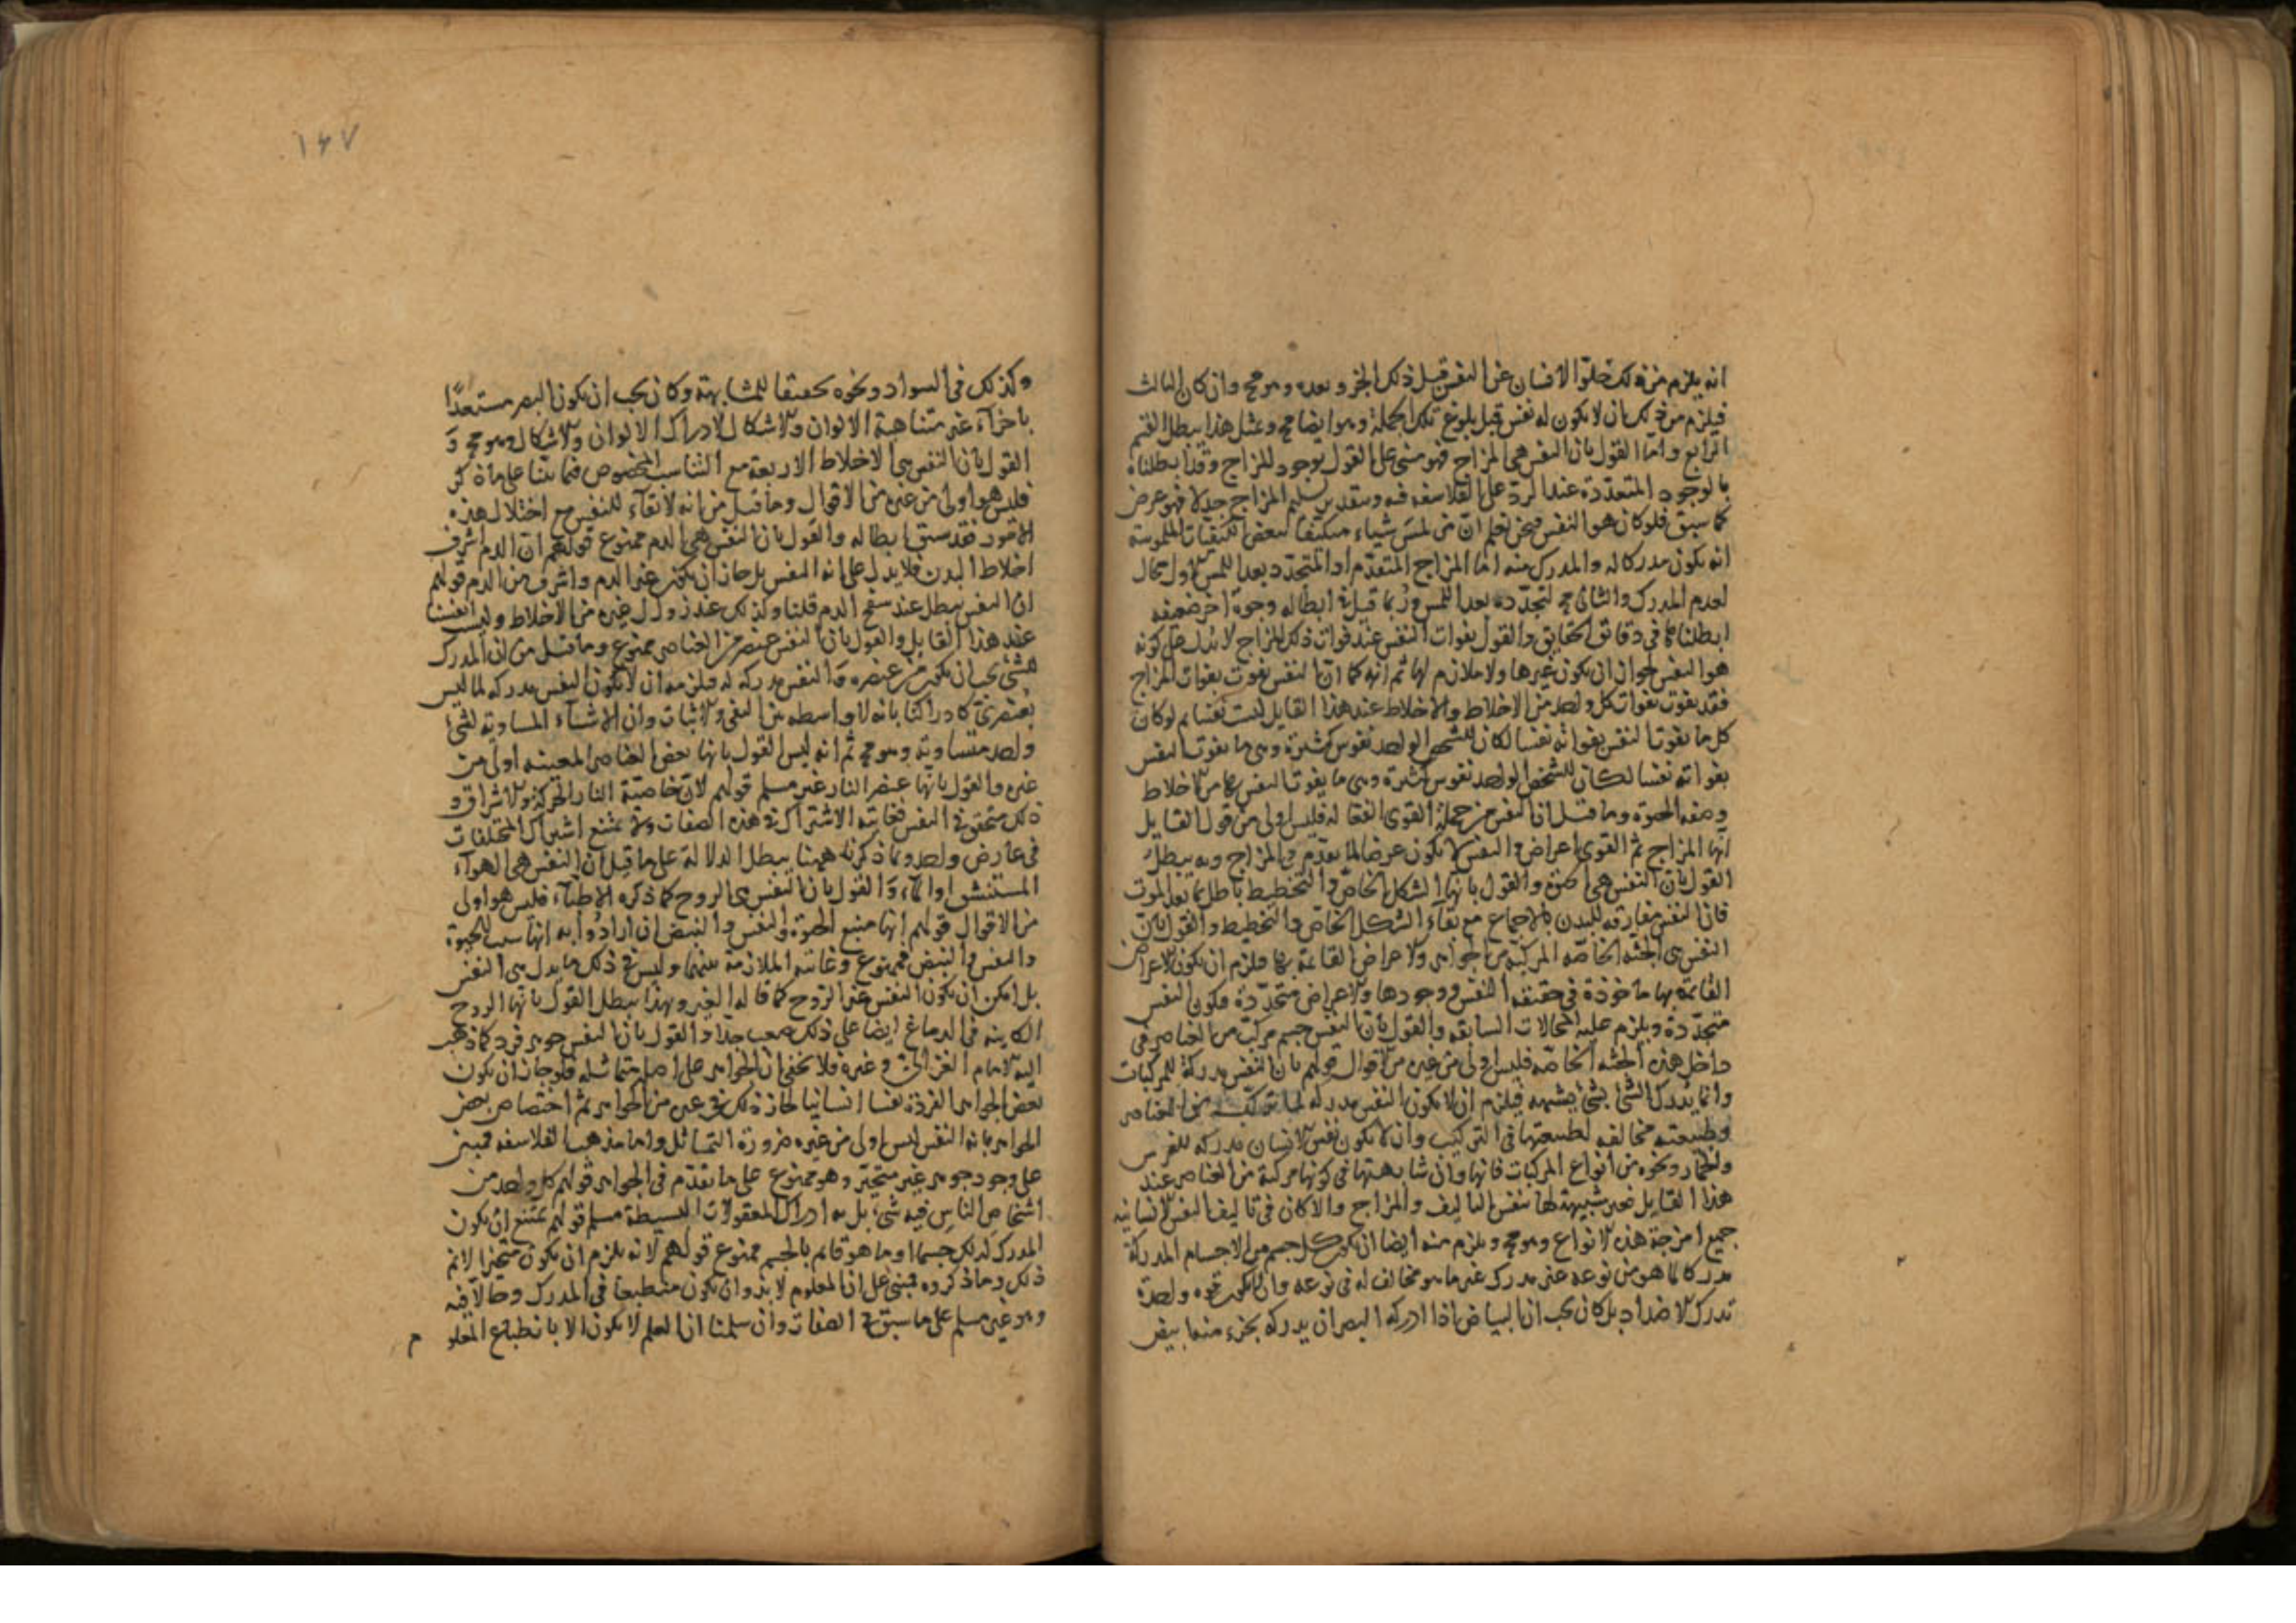 انه يلزم من ذلك خلو الانسان عن النفس قبل ذلك الجزو وبعده وهو مح وان كان الثالث
فيلزم من ذلك ان لا يكون له نفس قبل بلوغ تلك الجملة وهو ايضا مح وبمثل هذا يبطل القسم
الرابع واما القول بان النفس هي المزاج فهو مبنى على القول بوجود المزاج وقد ابطلناه
بالوجوه المتعددة عند الرد على الفلاسفه فيه وبتقدير تسليم المزاج جدلا فهو عرض
كما سبق فلو كان هو النفس فنحن نعلم ان من لمس شياء متكيفا ببعض الكيفيات الملموسة
انه يكون مدركا له والمدرك منه اما المزاج المتقدم او المتجدد بعد اللمس والاول محال
لعدم المدرك والثانى مح لتجدده بعد اللمس وربما قيل فى ابطاله وجوه اخر ضعيفه
ابطلناها في دقائق الحقايق والقول بفوات النفس عند فوات ذلك المزاج لا يدل على كونه
هو النفس لجواز ان يكون غيرها ولا ملازم لها ثم انه كما ان النفس تفوت بفوات المزاج
فقد تفوت بفوات كل واحد من الاخلاط والاخلاط عند هذا القايل ليست نفسا ثم لو كان
كل ما تفوت النفس بفواته نفسا لكان للشخص الواحد نفوس كثيرة وهى ما تفوت النفس
بفواته نفسا لكان للشخص الواحد نفوس كثيرة وهى ما يفوت النفس بها من الاخلاط
وصفه الحيوة وما قيل ان النفس من جملة القوى الفعاله فليس اولى من قول القايل
انها المزاج ثم القوى اعراض والنفس لا تكون عرضا لما تقدم في المزاج وبه يبطل
القول بان النفس هي صفة والقول بانها الشكل الخاص والتخطيط باطل بما بعد الموت
فان النفس مفارقه للبدن بالاجماع مع بقاء الشكل الخاص والتخطيط والقول بان
النفس هى الجثه الخاصه المركبة من الجواهر والاعراض القايمة بها فيلزم ان يكون الاعراض
القايمة بها ماخوذة في حقيقه النفس ووجودها والاعراض متجددة فيكون النفس
متجددة ويلزم عليه المحالات السابقه والقول بان النفس جسم مركب من العناصر فى
داخل هذه الجثه الخاصه فليس اولى من غيره من الاقوال قولهم بان النفس مدركة للمركبات
وانما يدرك الشئ بشئ يشبهه فيلزم ان لا يكون النفس مدركه لما تركبه من العناصر
وطبيعته مخالفه لطبيعتها في التركيب وان لا يكون نفس الانسان مدركه للفرس
والحمار ونحوه من انواع المركبات فانها وان شابهتها في كونها مركبة من العناصر عند
هذا القايل فغير شبيهة لها بنفس التاليف والمزاج والا كان في تاليف النفس الانسانيه
جميع امزجة هذه الانواع وهو مح ويلزم منه ايضا ان يكون كل جسم من الاجسام المدركة
مدركا لما هو من نوعه غير مدرك غير ما هو مخالف له في نوعه وان لا يكون قوه واحدة
تدرك الاضداد بل كان يجب ان البياض اذا ادركه البصر ان يدركه بجزء منه ابيض
١٤٧
وكذلك في السواد ونحوه تحقيقا للمشابهة وكان يجب ان يكون البصر مستعدا
باجزاء غير متناهية الالوان والاشكال لادراك الالوان والاشكال وهو مح و
القول بان النفس هى الاخلاط الاربعة مع التناسب المخصوص فما بنينا على ما ذكر
فليس هو اولى من غيره من الاقوال وما قيل من انه لا بقاء للنفس مع اختلال هذه
الامور فقد سبق ابطاله والقول بان النفس هي الدم ممنوع قولهم ان الدم اشرف
اخلاط البدن فلا يدل على انه النفس بل جاز ان يكون غير الدم واشرف من الدم قولهم
ان النفس تبطل عند سفح الدم قلنا وكذلك عند زوال غيره من الاخلاط وليست نفسا
عند هذا القايل والقول بان النفس عنصر من العناصر ممنوع وما قيل من ان المدرك
للشئ يجب ان يكون من عنصره والنفس مدركه له فيلزمه ان لا يكون النفس مدركه لما ليس
بعنصري كادراكنا بانه لا واسطه بين النفى والاثبات وان الاشياء المساوية لشئ
واحد متساوية وهو مح ثم انه ليس القول بانها بعض العناصر المعينه اولى من
غيره والقول بانها عنصر النار غير مسلم قولهم لان خاصية النار الحركة والاشراق و
ذلك متحقق فى النفس فغايته الاشتراك فى هذه الصفات ولا يمتنع اشتراك المختلفات
في عارض واحد وبما ذكرناه ههنا يبطل الدلالة على ما قيل ان النفس هي الهواء
المستنشق او الماء والقول بان النفس هى الروح كما ذكره الاطباء فليس هو اولى
من الاقوال قولهم انها منبع الحيوة والنفس والنبض ان ارادوا به انها سبب للحيوة
والنفس والنبض فممنوع وغايته الملازمة بينهما وليس فى ذلك ما يدل هى النفس
بل امكن ان يكون النفس غير الروح كما قاله الغير وبهذا يبطل القول بانها الروح
الكاينه في الدماغ ايضا على ذلك صعب جدا والقول بان النفس جوهر فرد كما ذهب
اليه الامام الغزالى وغيره فلا يخفى ان الجواهر على اصلها متماثله فلو جاز ان يكون
بعض الجواهر الفردة نفسا انسانيا لجاز ذلك فى غيره من الجواهر ثم اختصاص بعض
الجواهر بانه النفس ليس اولى من غيره ضرورة التماثل واما مذهب الفلاسفه فمبنى
على وجود جوهر غير متحيز وهو ممنوع على ما تقدم في الجواهر قولهم كل واحد من
اشخاص الناس فيه شئ بل به ادراك المعقولات البسيطة مسلم قولهم يمتنع ان يكون
المدرك لذلك جسما او ما هو قايم بالجسم ممنوع قولهم لانه يلزم ان يكون متحيزا لانم
ذلك وما ذكروه فمبنى على ان المعلوم لا بد وان يكون منطبعا في المدرك وحالا فيه
وهو غير مسلم على ما سبق فى الصفات وان سلمنا ان العلم لا يكون الا بانطباع المعلو م